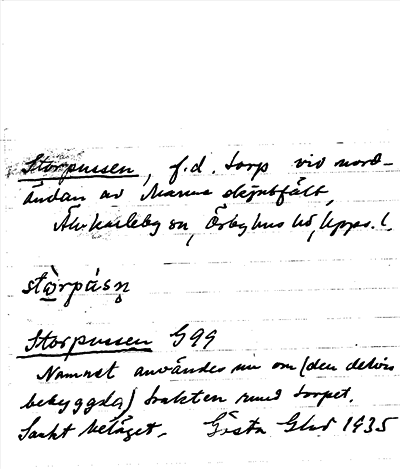 Storpussen, f.d. torp vid nord-
ändan av Marma skjutfält,
Älvkarleby sn, Örbyhus hd, Upps. l.
Storpussen G99
Namnet användes nu om (den delvis
bebyggda) trakten runt torpet.
Sankt beläget. Gösta 1935